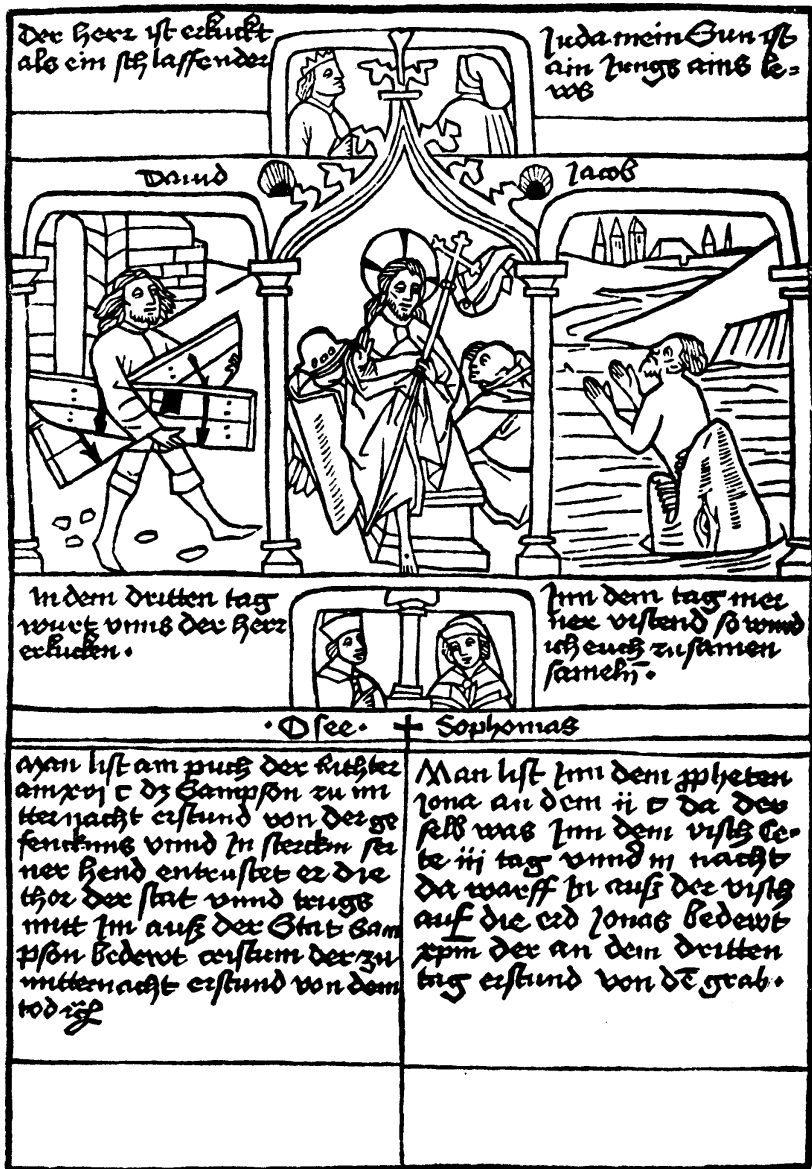 Der herr ist erkuckt
als ein schlaffender
Juda mein Sun ist
ain Jungs ains le=
ws
Dauid
Jacob
In dem dritten tag
wurt vnns der herr
erkucken.
Jnn dem tag mei
ner vrstend so wirud
ich euch zu samen
sameln̄.
·Osee·
Sophonias
Man list am puch der Richter
am xvj c dz Sampson zu mi
tternacht erstund von der ge
fencknus vnnd Jn sterckin sei
ner hend entrustet er die
thor der stat vnnd trugs
mitt Jm auß der Stat Sam
pson bedewt cristum der zu
mitternacht erstund von dem
tod
Man list Jnn dem ꝓpheten
Jona an dem ii c da der
selb was Jnn dem visch Ce-
te iii tag vnnd iii nacht
da warff Jn auß der visch
auf die erd Jonas bedewt
xp̄m der an dem dritten
tag erstund von dē grab.